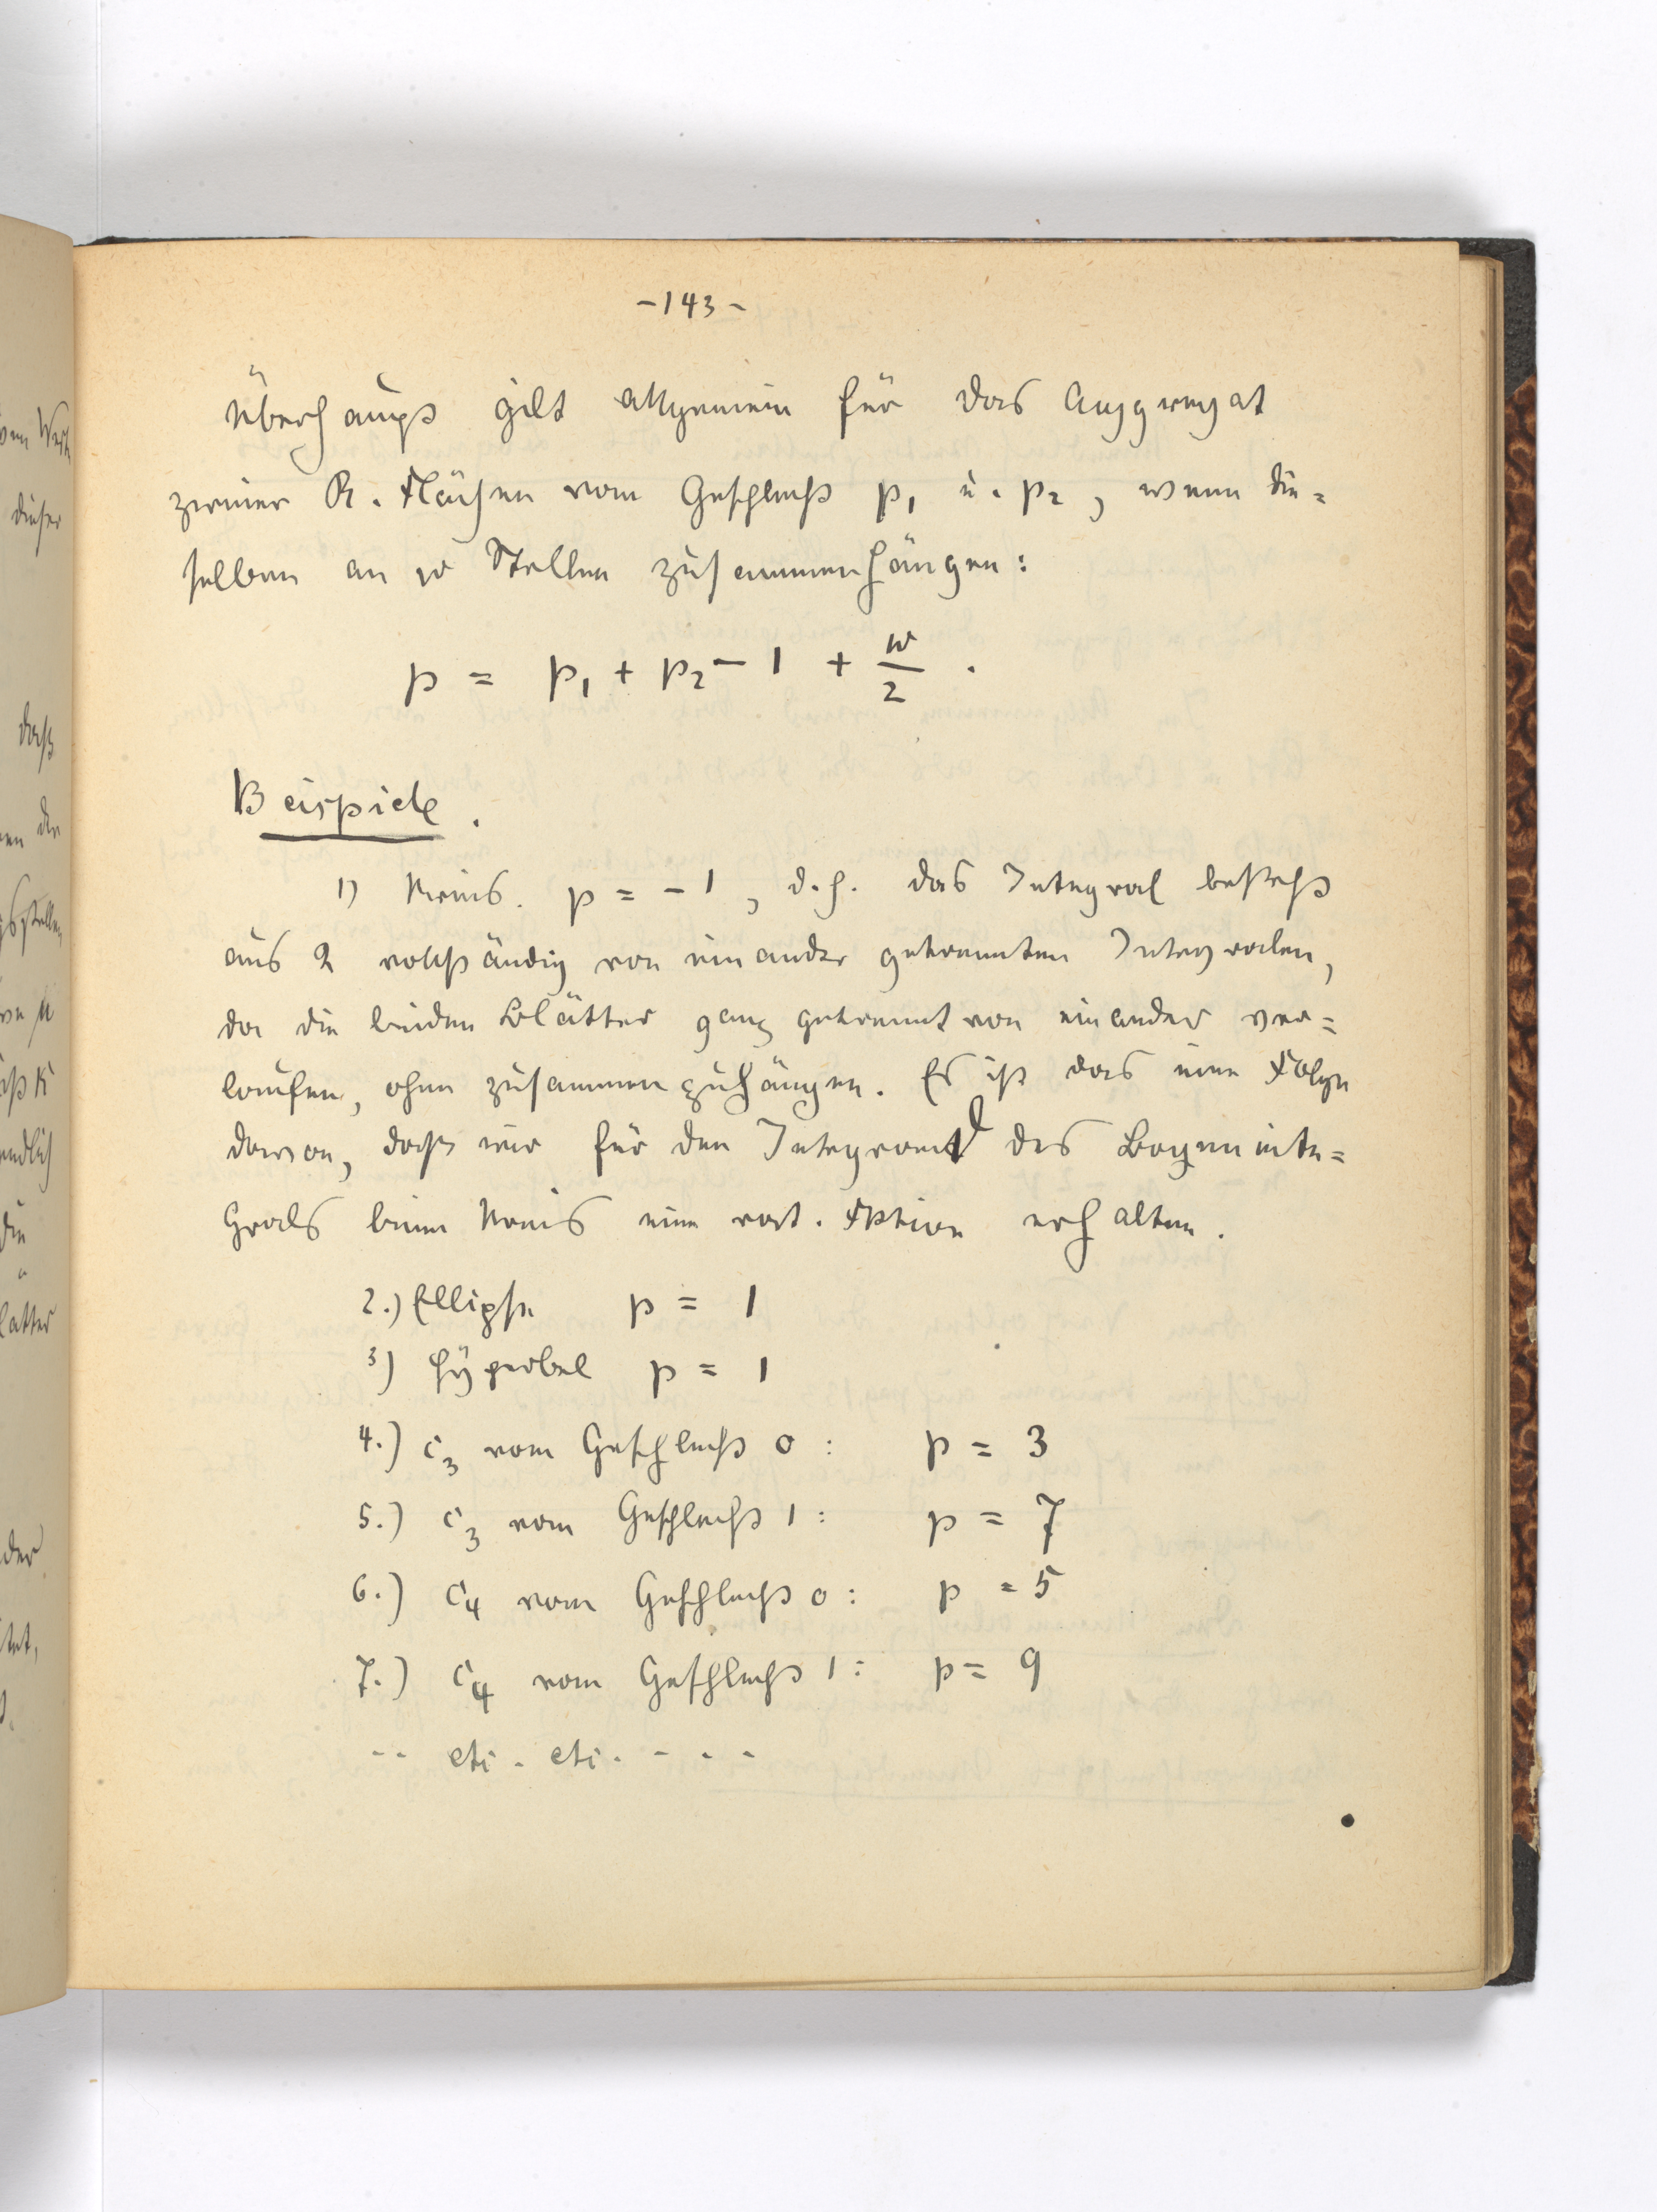 -143-
Überhaupt gilt allgemein für das Aggregat
zweier R. Flächen vom Geschlecht p₁ u. p₂, wenn die=
selben an w Stellen zusammenhängen:
p = p₁ + p₂ - 1 + w/2 .
Beispiele.
1) Kreis. p = -1, d.h. das Integral besteht
aus 2 vollständig von einander getrennten Integralen,
da die beiden Blätter ganz getrennt von einander ver=
laufen, ohne zusammenzuhängen. Es ist das eine Folge
davon, daß wir für den Integrand des Bogeninte=
grals beim Kreis eine rat. Fktion erhalten.
2.) Ellipse p = 1
3) Hyperbel p = 1
4.) C₃ vom Geschlecht 0 : p = 3
5.) C₃ vom Geschlecht 1 : p = 7
6.) C₄ vom Geschlecht 0 : p = 5
7.) C₄ vom Geschlecht 1 : p = 9
-- etc. etc. - - - -